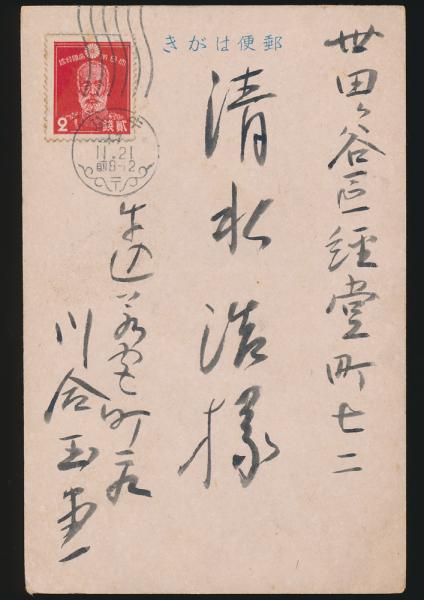 郵便はがき
世田ヶ谷區經堂町七二
清水浩様
牛込若宮町
川合玉堂
大日本帝國郵便
2 貳錢
11.21
前8-12